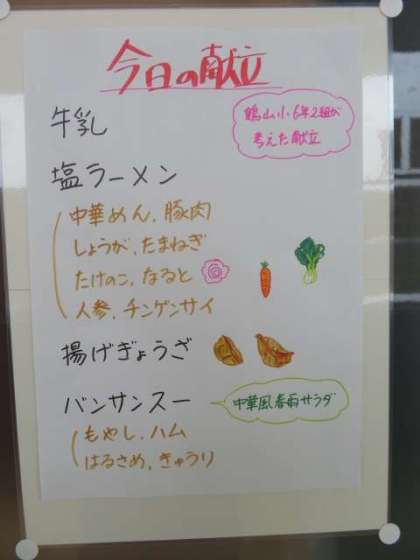 今日の献立
牛乳
鶴山小6年2組が
考えた献立
塩ラーメン
中華めん、豚肉
しょうが、たまねぎ
たけのこ、なると
人参、チンゲンサイ
揚げぎょうざ
バンサンスー
中華風春雨サラダ
もやし、ハム
はるさめ、きゅうり